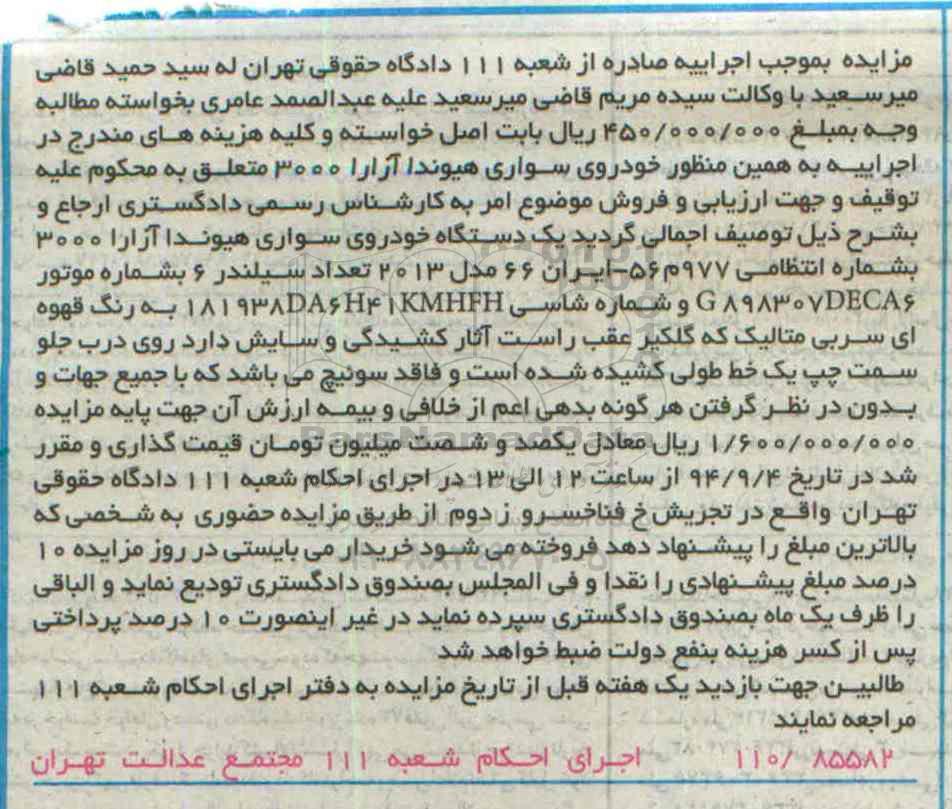 مزایده بموجب اجراییه صادره از شعبه ۱۱۱ دادگاه حقوقی تهران له سید حمید قاضی
میرسعید با وکالت سیده مریم قاضی میرسعید علیه عبدالصمد عامری بخواسته مطالبه
وجه بمبلغ ۴۵۰/۰۰۰/۰۰۰ ریال بابت اصل خواسته و کلیه هزینه های مندرج در
اجراییه به همین منظور خودروی سواری هیوندا آزارا ۳۰۰۰ متعلق به محکوم علیه
توقیف و جهت ارزیابی و فروش موضوع امر به کارشناس رسمی دادگستری ارجاع و
بشرح ذیل توصیف اجمالی گردید یک دستگاه خودروی سواری هیوندا آزارا ۳۰۰۰
بشماره انتظامی ۹۷۷م۵۶-ایران ۶۶ مدل ۲۰۱۳ تعداد سیلندر ۶ بشماره موتور
G۸۹۸۳۰۷DECA۶ و شماره شاسی ۱۸۱۹۳۸DA۶H۴۱KMHFH به رنگ قهوه
ای سربی متالیک که گلگیر عقب راست آثار کشیدگی و سایش دارد روی درب جلو
سمت چپ یک خط طولی کشیده شده است و فاقد سوئیچ می باشد که با جمیع جهات و
بدون در نظر گرفتن هر گونه بدهی اعم از خلافی و بیمه ارزش آن جهت پایه مزایده
۱/۶۰۰/۰۰۰/۰۰۰ ریال معادل یکصد و شصت میلیون تومان قیمت گذاری و مقرر
شد در تاریخ ۹۴/۹/۴ از ساعت ۱۲ الی ۱۳ در اجرای احکام شعبه ۱۱۱ دادگاه حقوقی
تهران واقع در تجریش خ فناخسرو ز دوم از طریق مزایده حضوری به شخصی که
بالاترین مبلغ را پیشنهاد دهد فروخته می شود خریدار می بایستی در روز مزایده ۱۰
درصد مبلغ پیشنهادی را نقدا و فی المجلس بصندوق دادگستری تودیع نماید و الباقی
را ظرف یک ماه بصندوق دادگستری سپرده نماید در غیر اینصورت ۱۰ درصد پرداختی
پس از کسر هزینه بنفع دولت ضبط خواهد شد
طالبین جهت بازدید یک هفته قبل از تاریخ مزایده به دفتر اجرای احکام شعبه ۱۱۱
مراجعه نمایند
۱۱۰/ ۸۵۵۸۲ اجرای احکام شعبه ۱۱۱ مجتمع عدالت تهران
ParsNamadData